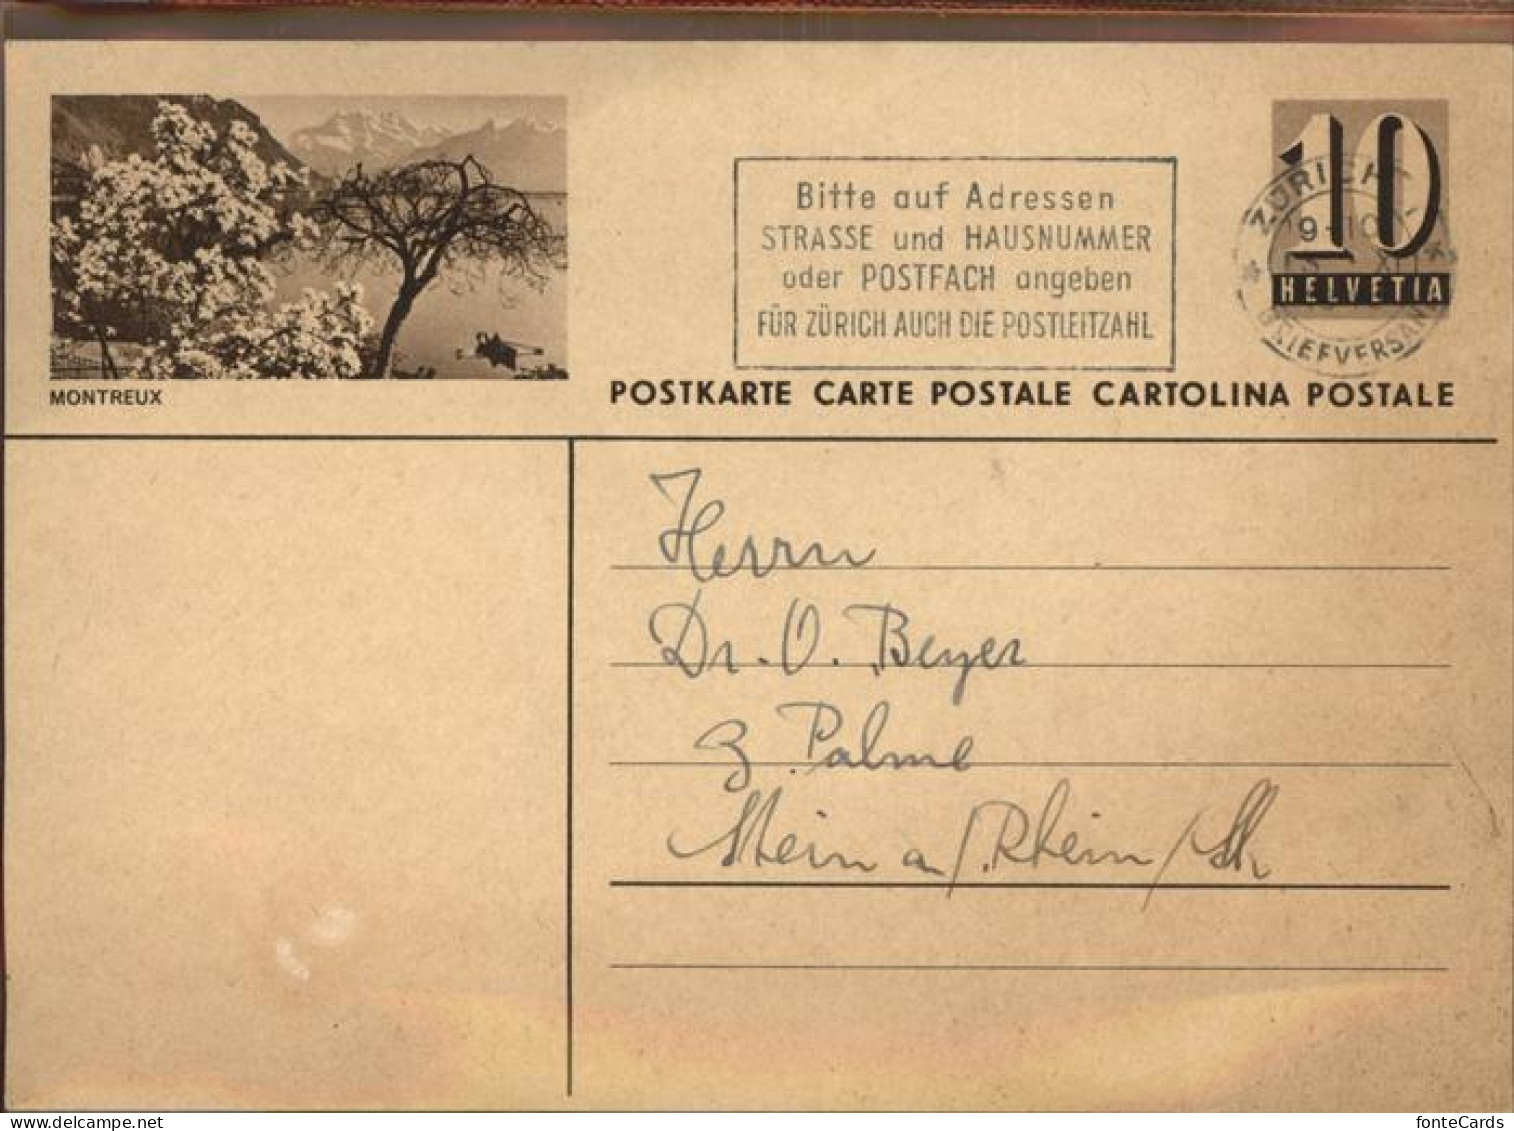 MONTREUX
Bitte auf Adressen
STRASSE und HAUSNUMMER
oder POSTFACH angeben
FÜR ZÜRICH AUCH DIE POSTLEITZAHL
10
HELVETIA
ZÜRICH
BRIEFVERSAND
POSTKARTE CARTE POSTALE CARTOLINA POSTALE
Herrn
Dr. O. Beyer
z. Palme
Stein a/Rhein/Sh
fonteCards
delcampe.net